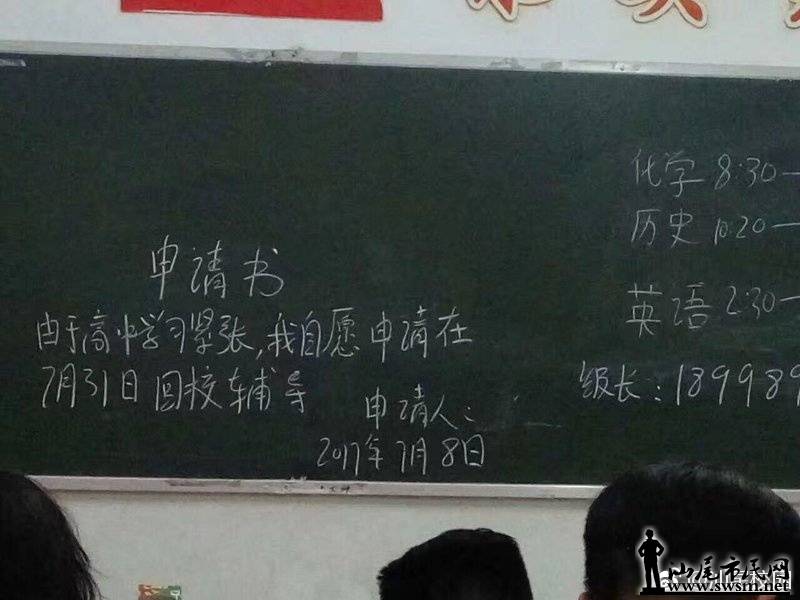 申请书
由于高中学习紧张,我自愿申请在
7月31日回校辅导
申请人:
2017年7月8日
化学 8:30—
历史 10:20—
英语 2:30—
级长:189989
汕尾市民网
www.swsm.net